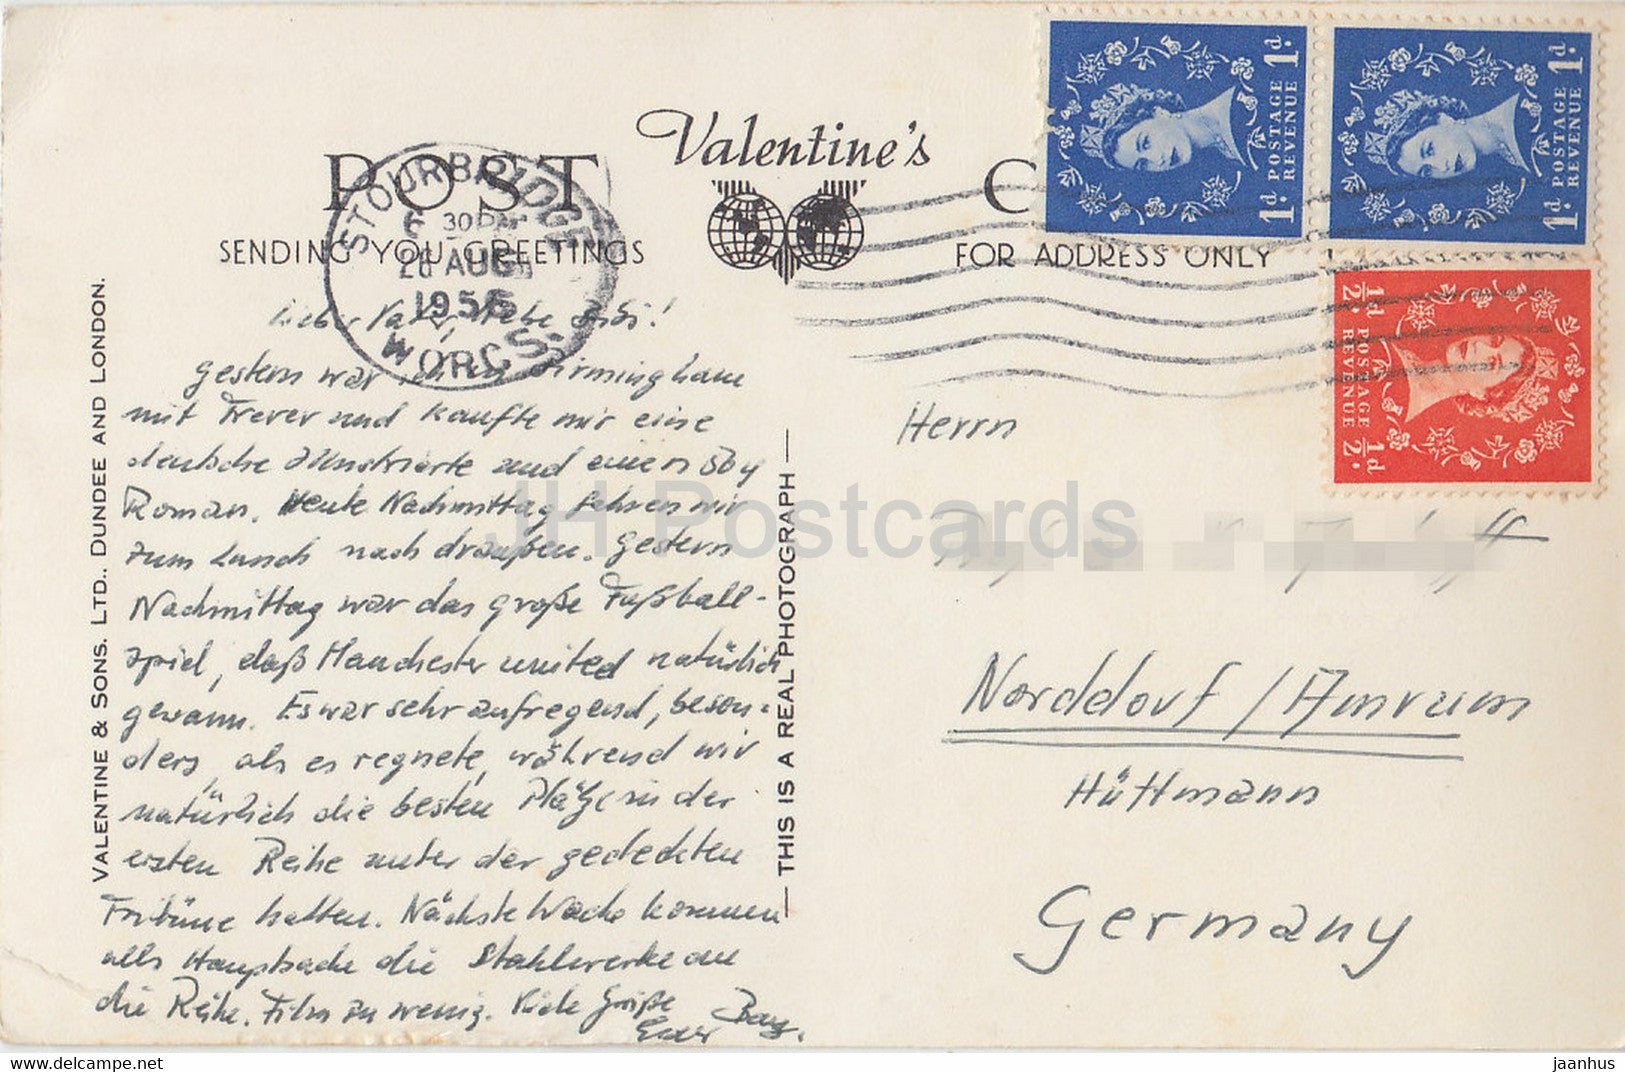 POST Valentine's
SENDING YOU GREETINGS
FOR ADDRESS ONLY
STOURBRIDGE
30PM
26 AUG
1956
WORCS.
1d. POSTAGE REVENUE 1d.
1d. POSTAGE REVENUE 1d.
½d. POSTAGE REVENUE ½d.
Lieber Vater, liebe
gestern war ich in Birmingham
mit Trever und kaufte mir eine
deutsche Illustrierte und einen
Roman. Heute Nachmittag fahren wir
zum Lunch nach draußen. Gestern
Nachmittag war das große Fußball-
spiel, daß Manchester united natürlich
gewann. Es war sehr aufregend, beson-
ders, als es regnete, während wir
natürlich die besten Plätze in der
ersten Reihe unter der gedeckten
Tribüne hatten. Nächste Woche kommen
als Hauptsache die Stahlwerke an
die Reihe. Film zu wenig. Viele Grüße
Euer
Herrn
Norddorf / Amrum
Hüttmann
Germany
VALENTINE & SONS. LTD., DUNDEE AND LONDON.
THIS IS A REAL PHOTOGRAPH
JH Postcards
https://www.jaanhus.com
jaanhus